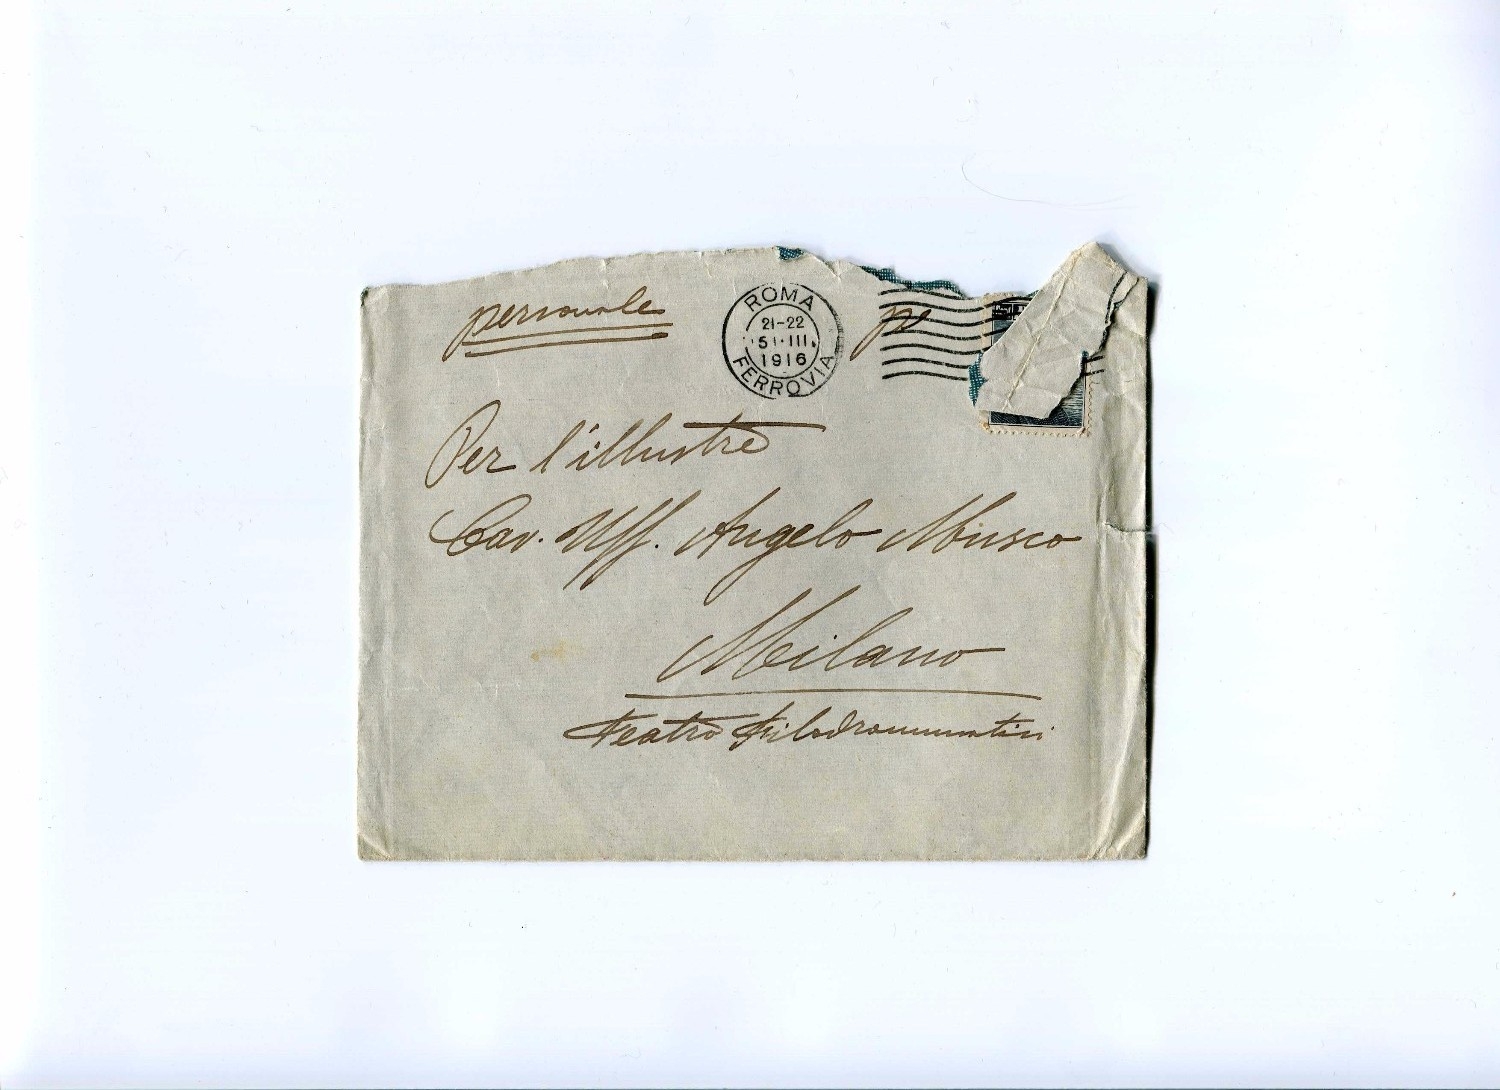 personale
ROMA
21-22
1916
FERROVIA
Per l'illustre
Cav. Uff. Angelo Musco
Milano
Teatro Filodrammatici